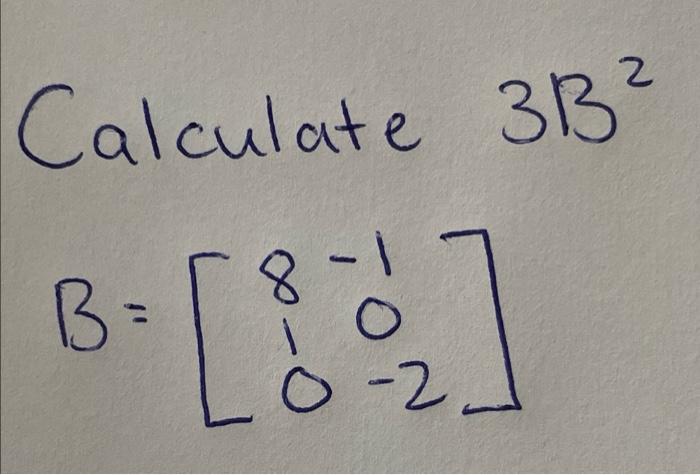 Calculate 3B²
B = [ 8 -1
1 0
0 -2 ]